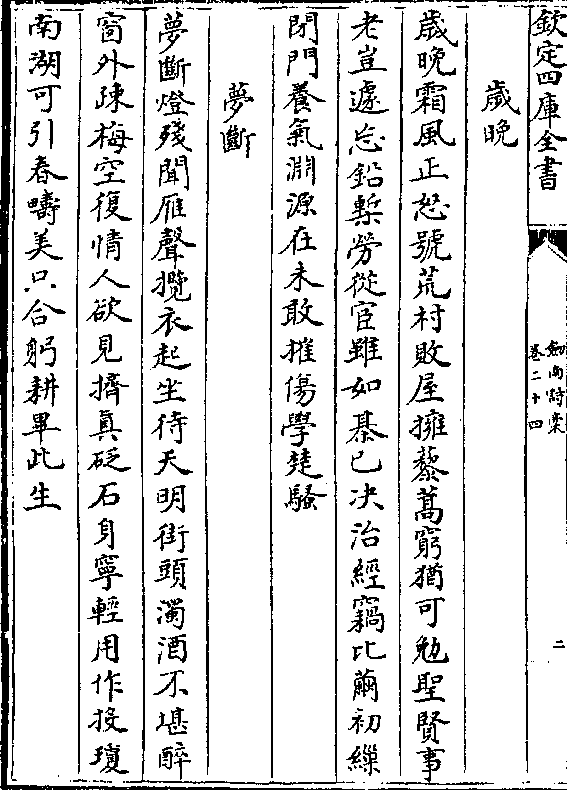 欽定四庫全書
劍南詩稾
卷二十四
二
歲晩
歲晩霜風正怒號荒村敗屋擁藜蒿窮猶可勉聖賢事
老豈遽忘鉛槧勞從宦雖如棊已决治經竊比繭初繰
閉門養氣淵源在未敢摧傷學楚騷
夢斷
夢斷燈殘聞雁聲攬衣起坐待天明街頭濁酒不堪醉
窗外疎梅空復情人欲見擠真砭石身寧輕用作投瓊
南湖可引春疇美只合躬耕畢此生